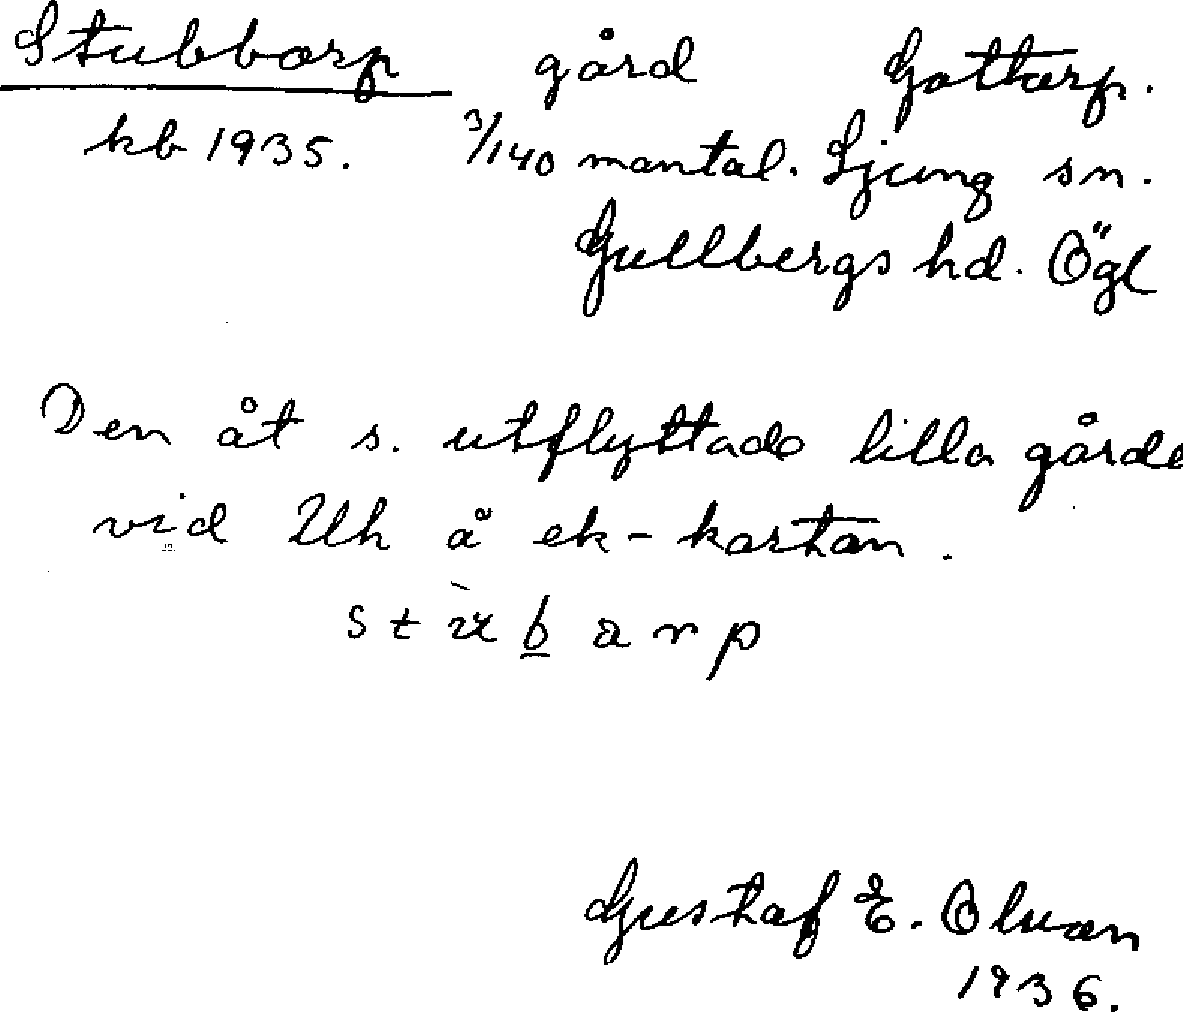 Stubbarp gård Gottarp.
kb 1935. 3/140 mantal. Ljung sn.
Gullbergs hd. Ögl
Den åt s. utflyttade lilla gårde
vid Uh å ek-kartan.
stùbarp
Gustaf E. Olvan
1936.